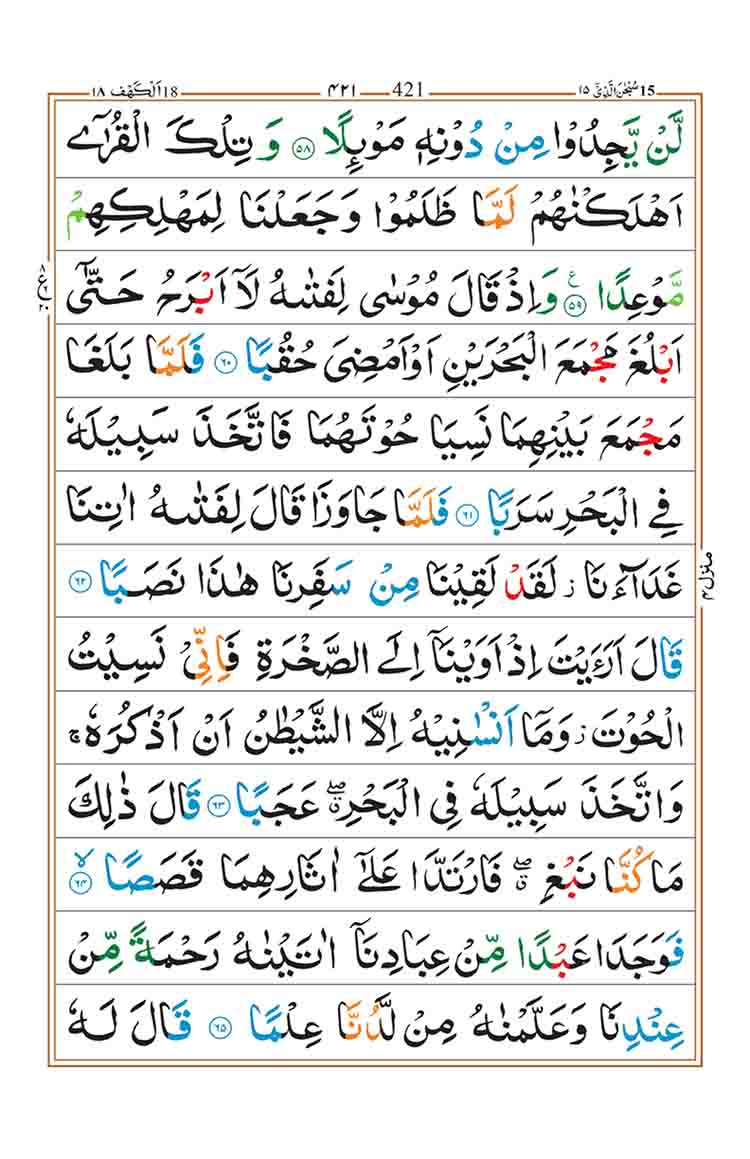 15 سُبْحٰنَ الَّذِیْۤ ١٥ — 421 — ۴۲۱ — 18 اَلْكَهْف ١٨
لَّنْ یَّجِدُوْا مِنْ دُوْنِهٖ مَوْىِٕلًا ۝۵۸ وَ تِلْكَ الْقُرٰۤى
اَهْلَكْنٰهُمْ لَمَّا ظَلَمُوْا وَ جَعَلْنَا لِمَهْلِكِهِمْ
مَّوْعِدًا ۝۵۹ ع وَ اِذْ قَالَ مُوْسٰى لِفَتٰىهُ لَاۤ اَبْرَحُ حَتّٰۤى
ع
اَبْلُغَ مَجْمَعَ الْبَحْرَیْنِ اَوْ اَمْضِیَ حُقُبًا ۝۶۰ فَلَمَّا بَلَغَا
مَجْمَعَ بَیْنِهِمَا نَسِیَا حُوْتَهُمَا فَاتَّخَذَ سَبِیْلَهٗ
فِی الْبَحْرِ سَرَبًا ۝۶۱ فَلَمَّا جَاوَزَا قَالَ لِفَتٰىهُ اٰتِنَا
غَدَآءَنَا ز لَقَدْ لَقِیْنَا مِنْ سَفَرِنَا هٰذَا نَصَبًا ۝۶۲
منزل ۴
قَالَ اَرَءَیْتَ اِذْ اَوَیْنَاۤ اِلَى الصَّخْرَةِ فَاِنِّیْ نَسِیْتُ
الْحُوْتَ ز وَ مَاۤ اَنْسٰىنِیْهُ اِلَّا الشَّیْطٰنُ اَنْ اَذْكُرَهٗ ۚ
وَ اتَّخَذَ سَبِیْلَهٗ فِی الْبَحْرِ ۖۗ عَجَبًا ۝۶۳ قَالَ ذٰلِكَ
مَا كُنَّا نَبْغِ ۖۗ فَارْتَدَّا عَلٰۤى اٰثَارِهِمَا قَصَصًا ۝۶۴ۙ
فَوَجَدَا عَبْدًا مِّنْ عِبَادِنَاۤ اٰتَیْنٰهُ رَحْمَةً مِّنْ
عِنْدِنَا وَ عَلَّمْنٰهُ مِنْ لَّدُنَّا عِلْمًا ۝۶۵ قَالَ لَهٗ